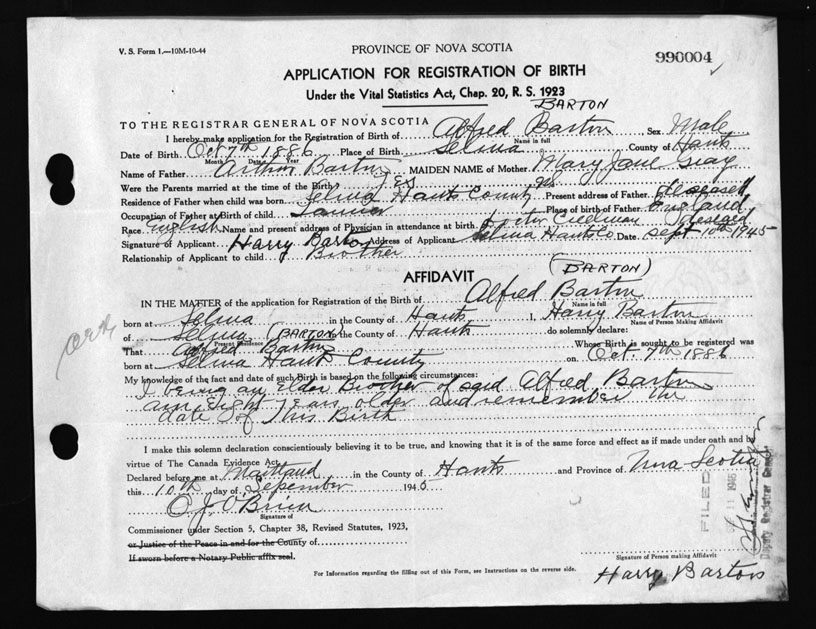 V. S. Form 1.—10M-10-44
PROVINCE OF NOVA SCOTIA
990004
APPLICATION FOR REGISTRATION OF BIRTH
Under the Vital Statistics Act, Chap. 20, R. S. 1923
BARTON
TO THE REGISTRAR GENERAL OF NOVA SCOTIA
I hereby make application for the Registration of Birth of Alfred Barton Sex Male
Name in full
Date of Birth Oct 7th 1886 Place of Birth Selma County of Hants
Month Date Year
Name of Father Arthur Barton MAIDEN NAME of Mother Mary Jane Gray
Were the Parents married at the time of the Birth Yes
Residence of Father when child was born Selma Hants County NS Present address of Father Deceased
Occupation of Father at Birth of child Place of birth of Father England
Race English Name and present address of Physician in attendance at birth Doctor deseased
Signature of Applicant Harry Barton Address of Applicant Selma Hants Co Date Sept 10th 1945
Relationship of Applicant to child Brother
AFFIDAVIT
(BARTON)
IN THE MATTER of the application for Registration of the Birth of Alfred Barton
Name in full
born at Selma in the County of Hants I, Harry Barton
Name of Person Making Affidavit
of Selma in the County of Hants do solemnly declare:
Present Residence (BARTON)
That Alfred Barton Whose Birth is sought to be registered was
born at Selma Hants County on Oct. 7th 1886
My knowledge of the fact and date of such Birth is based on the following circumstances:
I being an Elder Brother of said Alfred Barton
am Eight years older and remember the
date of this Birth
I make this solemn declaration conscientiously believing it to be true, and knowing that it is of the same force and effect as if made under oath and by
virtue of The Canada Evidence Act.
Declared before me at Maitland in the County of Hants and Province of Nova Scotia
this 10th day of September 1945
C. J. O'Brien
Signature of
Commissioner under Section 5, Chapter 38, Revised Statutes, 1923,
or Justice of the Peace in and for the County of
If sworn before a Notary Public affix seal.
Signature of Person making Affidavit
Harry Barton
For Information regarding the filling out of this Form, see Instructions on the reverse side.
FILED
Deputy Registrar General